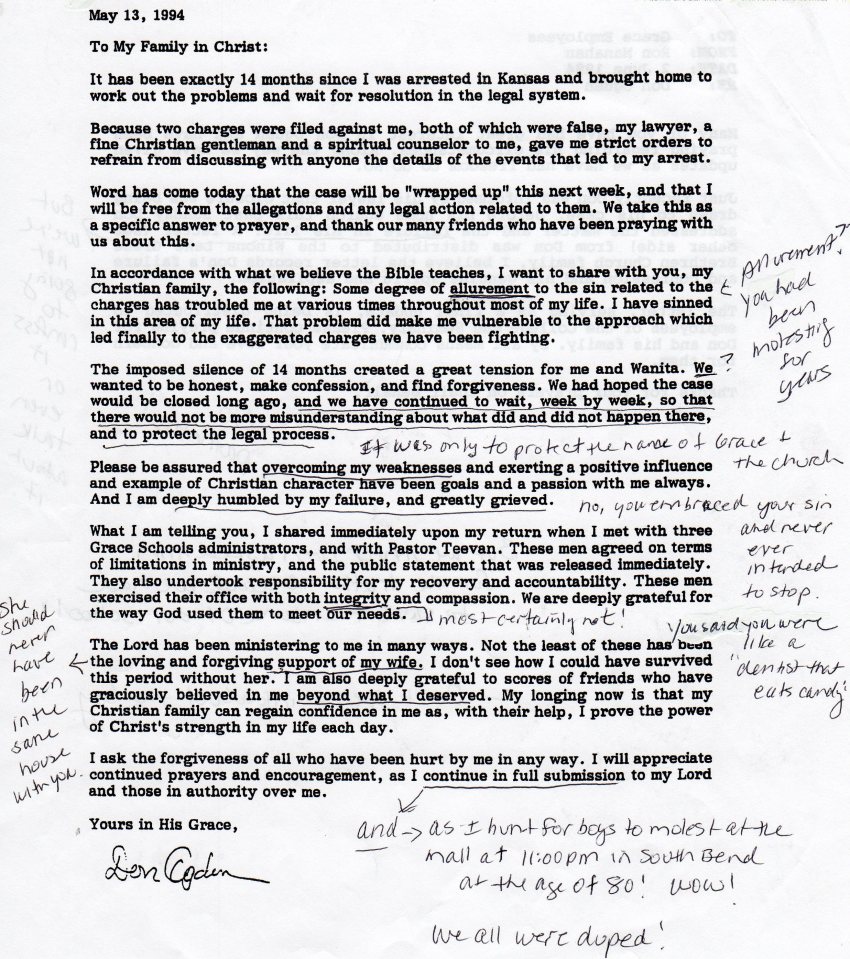 May 13, 1994
To My Family in Christ:
It has been exactly 14 months since I was arrested in Kansas and brought home to
work out the problems and wait for resolution in the legal system.
Because two charges were filed against me, both of which were false, my lawyer, a
fine Christian gentleman and a spiritual counselor to me, gave me strict orders to
refrain from discussing with anyone the details of the events that led to my arrest.
Word has come today that the case will be "wrapped up" this next week, and that I
will be free from the allegations and any legal action related to them. We take this as
a specific answer to prayer, and thank our many friends who have been praying with
us about this.
In accordance with what we believe the Bible teaches, I want to share with you, my
Christian family, the following: Some degree of allurement to the sin related to the
charges has troubled me at various times throughout most of my life. I have sinned
in this area of my life. That problem did make me vulnerable to the approach which
led finally to the exaggerated charges we have been fighting.
Allurement?
You had
been
molesting
for
years
The imposed silence of 14 months created a great tension for me and Wanita. We ?
wanted to be honest, make confession, and find forgiveness. We had hoped the case
would be closed long ago, and we have continued to wait, week by week, so that
there would not be more misunderstanding about what did and did not happen there,
and to protect the legal process.
It was only to protect the name of Grace +
the church
Please be assured that overcoming my weaknesses and exerting a positive influence
and example of Christian character have been goals and a passion with me always.
And I am deeply humbled by my failure, and greatly grieved.
no, you embraced your sin
and never
ever
intended
to stop.
What I am telling you, I shared immediately upon my return when I met with three
Grace Schools administrators, and with Pastor Teevan. These men agreed on terms
of limitations in ministry, and the public statement that was released immediately.
They also undertook responsibility for my recovery and accountability. These men
exercised their office with both integrity and compassion. We are deeply grateful for
the way God used them to meet our needs.
most certainly not!
You said you were
like a
"dentist that
eats candy"
She
should
never
have
been
in the
same
house
with you.
The Lord has been ministering to me in many ways. Not the least of these has been
the loving and forgiving support of my wife. I don't see how I could have survived
this period without her. I am also deeply grateful to scores of friends who have
graciously believed in me beyond what I deserved. My longing now is that my
Christian family can regain confidence in me as, with their help, I prove the power
of Christ's strength in my life each day.
I ask the forgiveness of all who have been hurt by me in any way. I will appreciate
continued prayers and encouragement, as I continue in full submission to my Lord
and those in authority over me.
Yours in His Grace,
Don Ogden
and → as I hunt for boys to molest at the
mall at 11:00pm in South Bend
at the age of 80! WOW!
We all were duped!